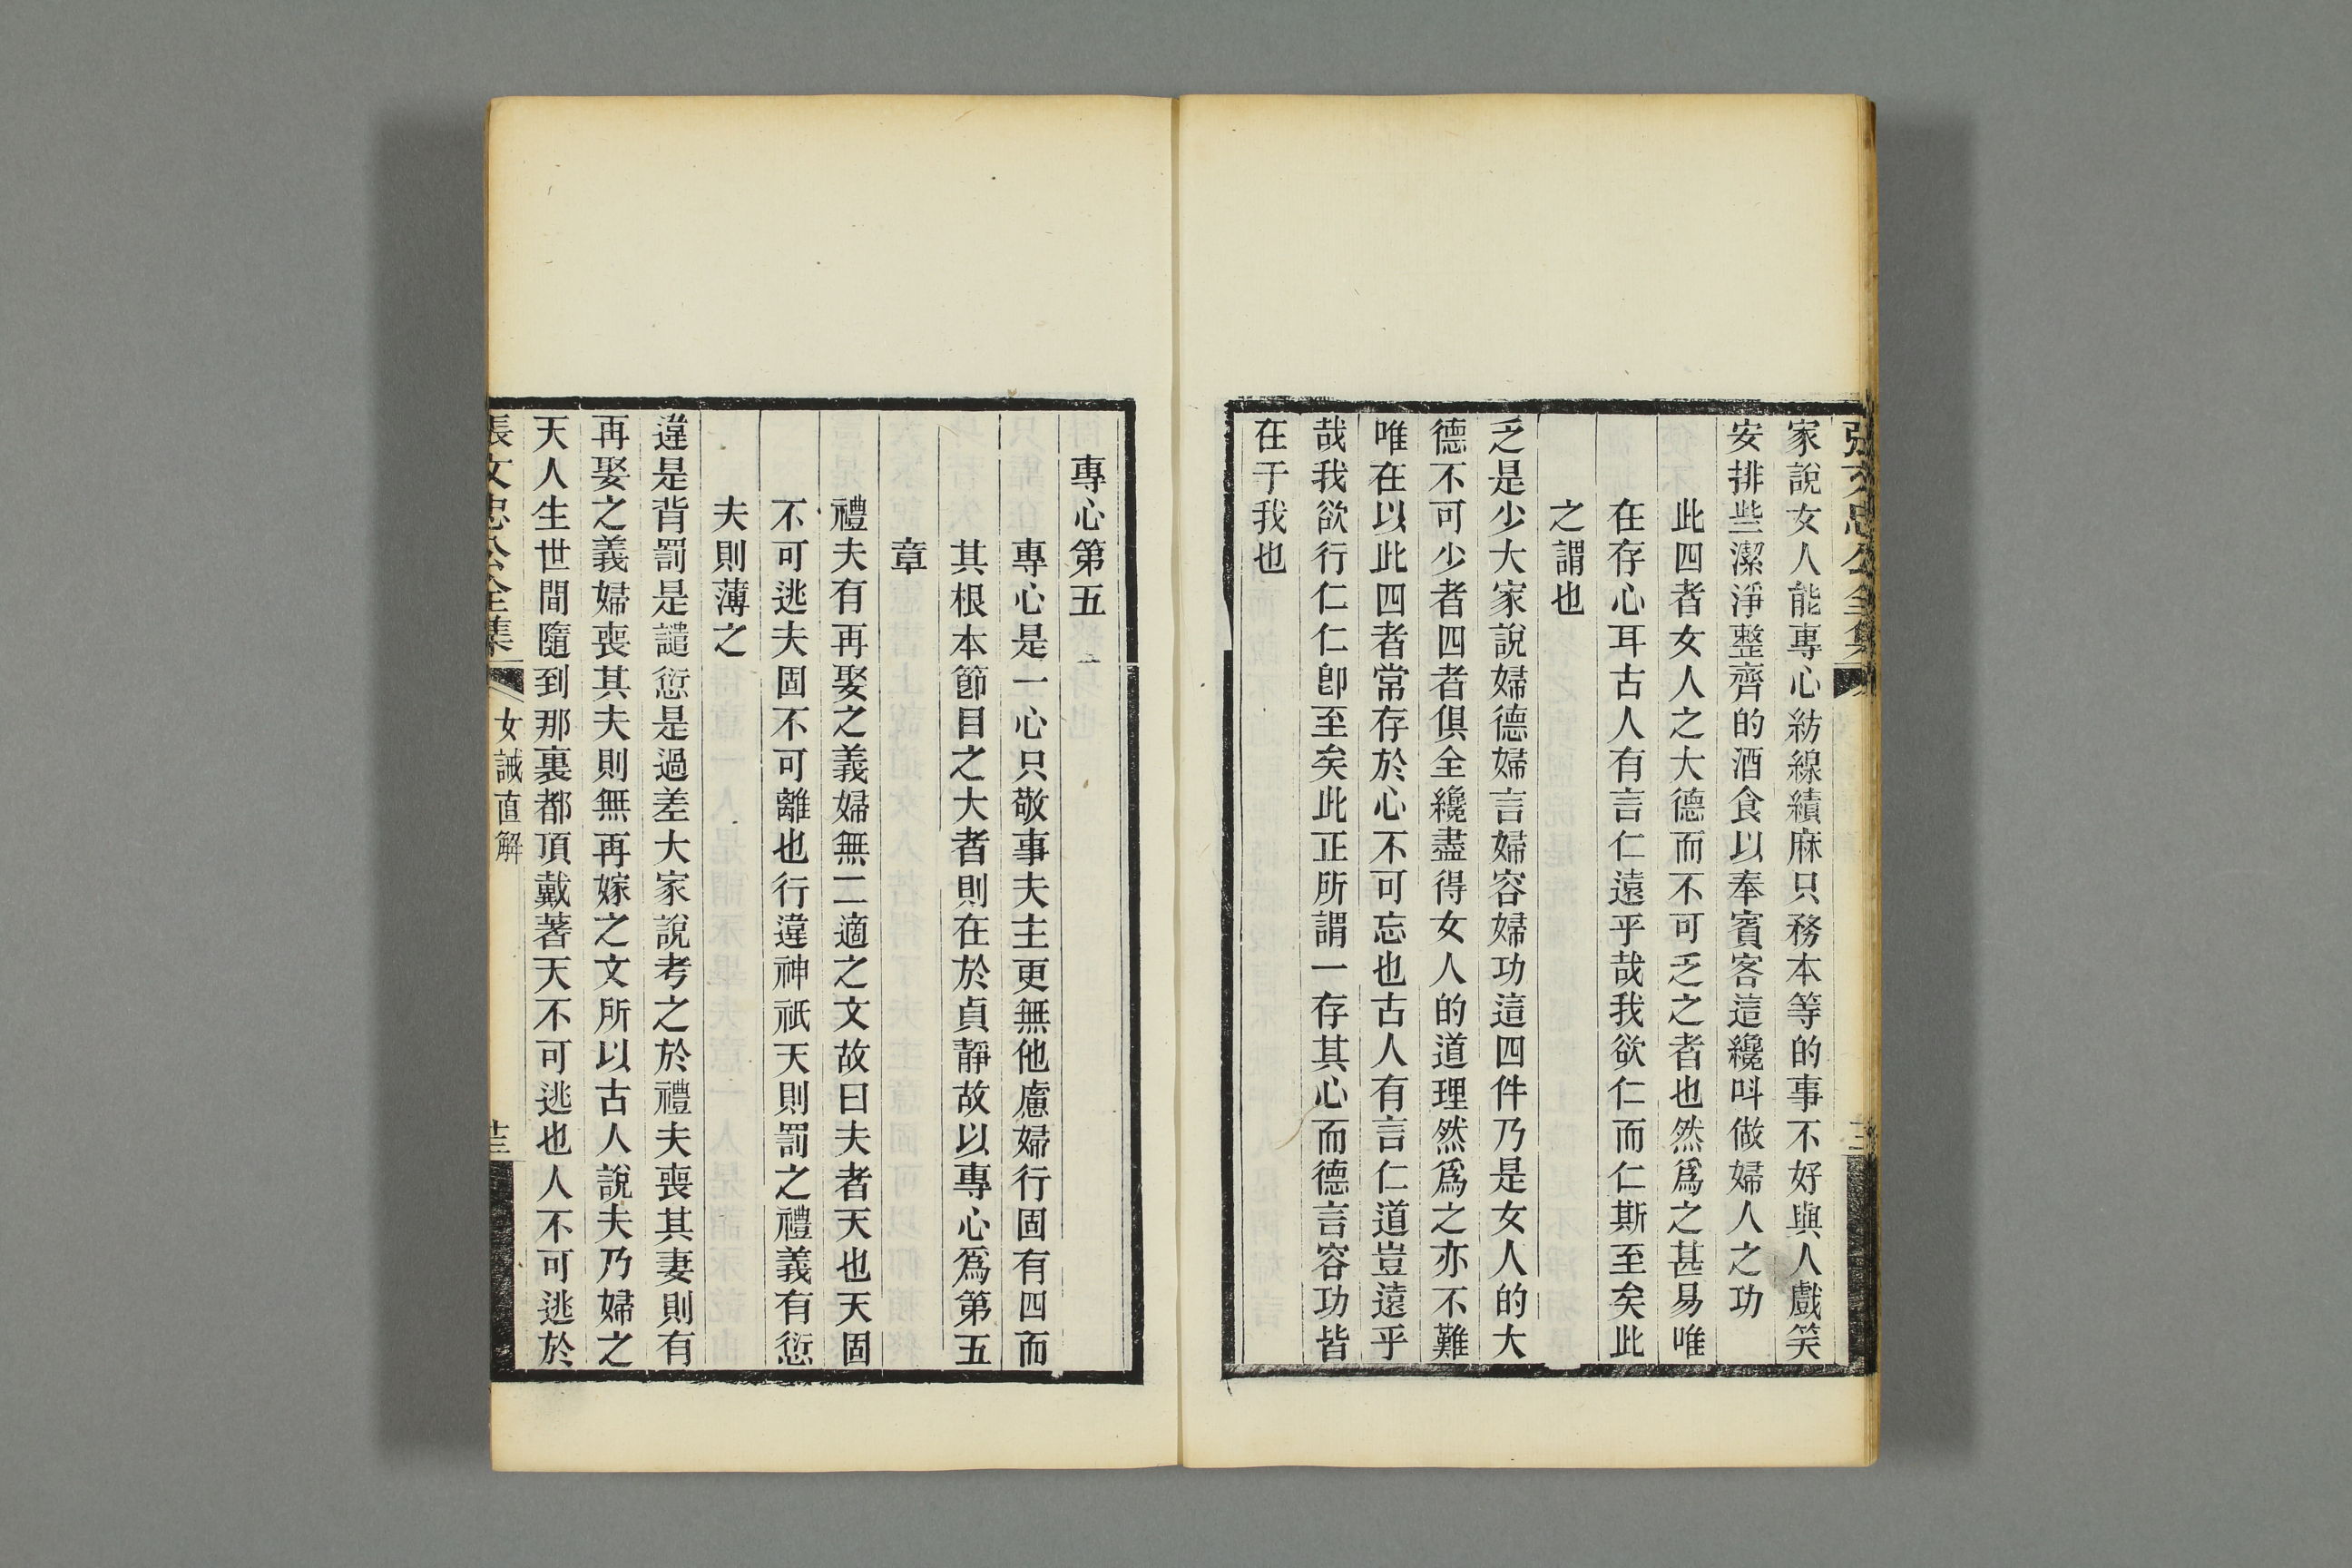 家說女人能專心紡線績麻只務本等的事不好與人戲笑
安排些潔淨整齊的酒食以奉賓客這纔呌做婦人之功
此四者女人之大德而不可乏之者也然爲之甚易唯
在存心耳古人有言仁遠乎哉我欲仁而仁斯至矣此
之謂也
乏是少大家說婦德婦言婦容婦功這四件乃是女人的大
德不可少者四者俱全纔盡得女人的道理然爲之亦不難
唯在以此四者常存於心不可忘也古人有言仁道豈遠乎
哉我欲行仁仁卽至矣此正所謂一存其心而德言容功皆
在于我也
專心第五
專心是一心只敬事夫主更無他慮婦行固有四而
其根本節目之大者則在於貞靜故以專心爲第五
章
禮夫有再娶之義婦無二適之文故曰夫者天也天固
不可逃夫固不可離也行違神祇天則罰之禮義有愆
夫則薄之
違是背罰是譴愆是過差大家說考之於禮夫喪其妻則有
再娶之義婦喪其夫則無再嫁之文所以古人說夫乃婦之
天人生世間隨到那裏都頂戴著天不可逃也人不可逃於
張文忠公全集
女誡直解